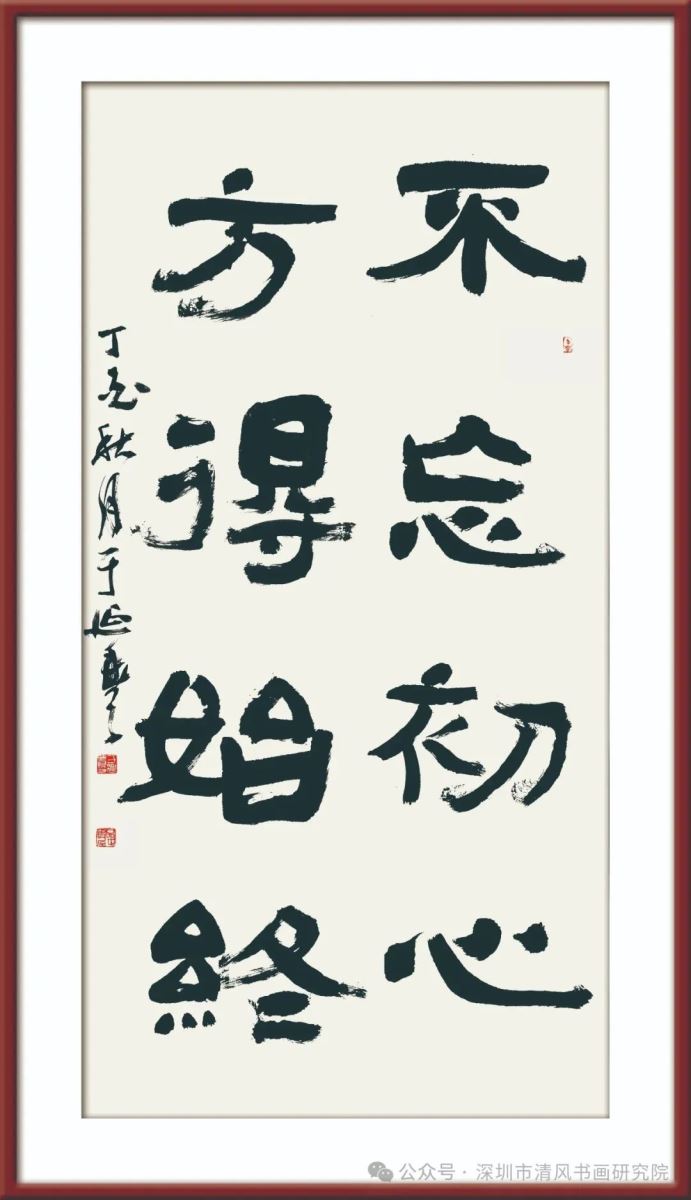 不忘初心
方得始终
丁酉秋月于延
公众号·深圳市清风书画研究院